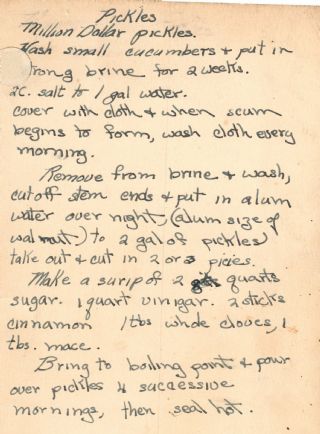 Pickles
Million Dollar pickles.
Wash small cucumbers & put in
strong brine for 2 weeks.
2C. salt to 1 gal water.
cover with cloth & when scum
begins to form, wash cloth every
morning.
Remove from brine & wash,
cut off stem ends & put in alum
water over night, (alum size of
walnut) to 2 gal of pickles
take out & cut in 2 or 3 picies.
Make a surip of 2 quarts
sugar. 1 quart vinigar. 2 sticks
cinnamon 1 tbs whole cloves, 1
tbs. mace.
Bring to boiling point & pour
over pickles 4 successive
mornings, then seal hot.